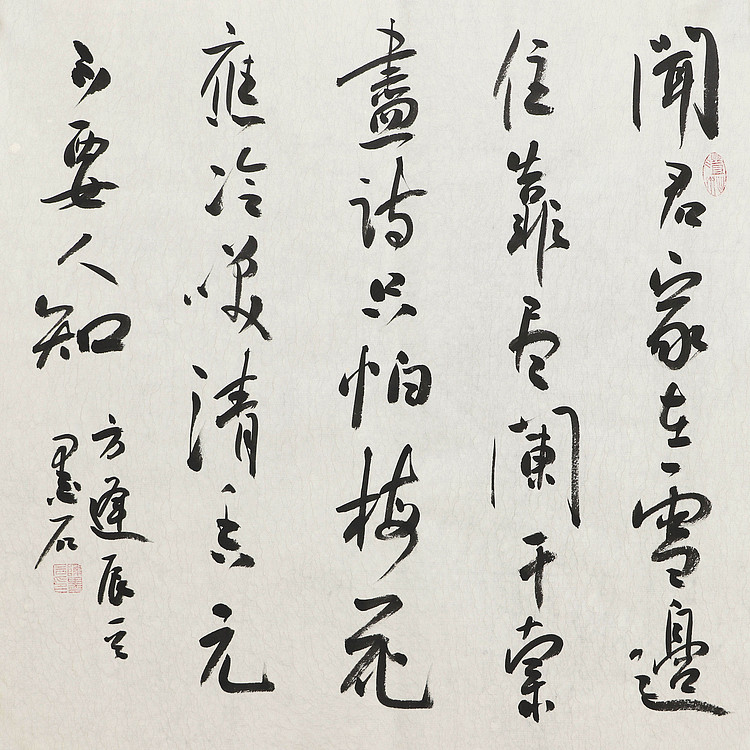 聞君家在雪邊
住靠尽闌干索
盡詩只怕梅花
應冷咲清香元
不要人知
方逢辰
墨石